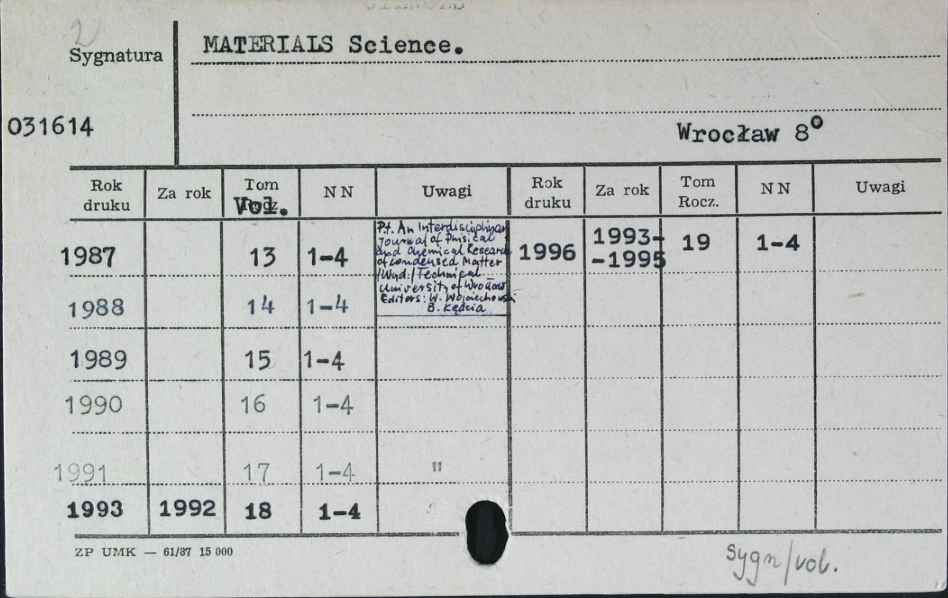 2
Sygnatura
MATERIALS Science.
031614
Wrocław 8°
Rok druku Za rok Tom Rocz. Vol. NN Uwagi Rok druku Za rok Tom Rocz. NN Uwagi
1987 13 1-4 1996 1993--1995 19 1-4
Pt. An Interdisciplinary
Journal of Phisical
and Chemical Research
of Condensed Matter
/Wyd./Technical
University of Wrocław
Editors: W. Wojciechowski
B. Kędzia
1988 14 1-4
1989 15 1-4
1990 16 1-4
1991 17 1-4 "
1993 1992 18 1-4
ZP UMK — 61/87 15 000
sygn/vol.